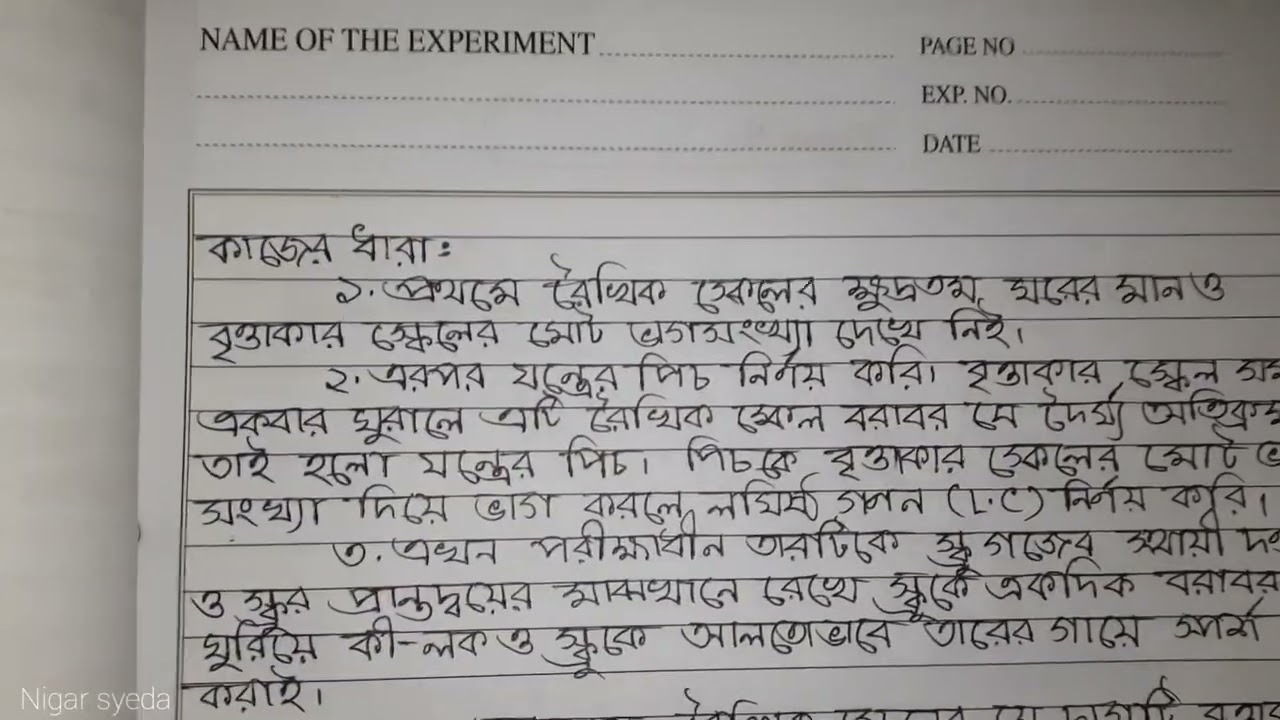 NAME OF THE EXPERIMENT
PAGE NO
EXP. NO.
DATE
কাজের ধারা:
১. প্রথমে রৈখিক স্কেলের ক্ষুদ্রতম ঘরের মান ও
বৃত্তাকার স্কেলের মোট ভাগসংখ্যা দেখে নিই।
২. এরপর যন্ত্রের পিচ নির্ণয় করি। বৃত্তাকার স্কেল
একবার ঘুরালে এটি রৈখিক স্কেল বরাবর যে দৈর্ঘ্য
তাই হলো যন্ত্রের পিচ। পিচকে বৃত্তাকার স্কেলের মোট
সংখ্যা দিয়ে ভাগ করলে লঘিষ্ঠ গণন (L.C) নির্ণয় করি।
৩. এখন পরীক্ষাধীন তারটিকে স্ক্রু গজের স্থায়ী
ও স্ক্রুর প্রান্তদ্বয়ের মাঝখানে রেখে স্ক্রুকে একদিক বরাবর
ঘুরিয়ে কী-লক ও স্ক্রুকে আলতোভাবে তারের গায়ে স্পর্শ
করাই।
Nigar syeda